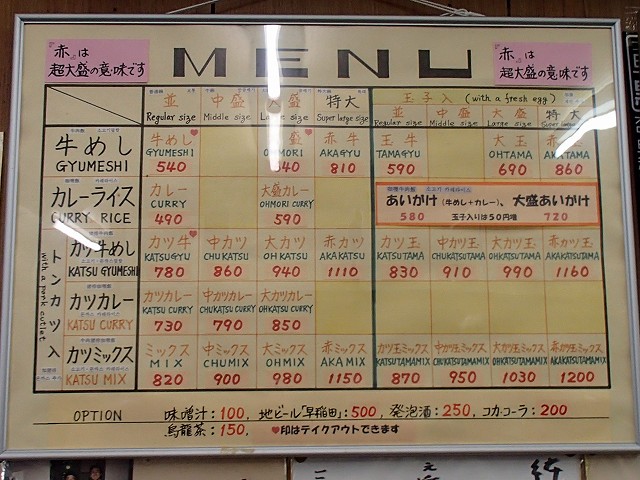 赤は
超大盛の意味です
MENU
赤は
超大盛の意味です
並 中盛 大盛 特大 玉子入 (with a fresh egg)
Regular size Middle size Large size Super large size
並 中盛 大盛 特大
Regular size Middle size Large size Super large size
牛めし 牛めし 赤牛 玉牛 大玉 赤玉
GYUMESHI GYUMESHI OHMORI AKAGYU TAMAGYU OHTAMA AKATAMA
540 640 810 590 690 860
カレーライス カレー 大盛カレー あいがけ(牛めし+カレー)、大盛あいがけ
CURRY RICE CURRY OHMORI CURRY 580 玉子入りは50円増 720
490 590
トンカツ入
with a pork cutlet
カツ牛めし カツ牛 中カツ 大カツ 赤カツ カツ玉 中カツ玉 大カツ玉 赤カツ玉
KATSU GYUMESHI KATSUGYU CHUKATSU OHKATSU AKAKATSU KATSUTAMA CHUKATSUTAMA OHKATSUTAMA AKAKATSUTAMA
780 860 940 1110 830 910 990 1160
カツカレー カツカレー 中カツカレー 大カツカレー
KATSU CURRY KATSU CURRY CHUKATSU CURRY OHKATSU CURRY
730 790 850
カツミックス ミックス 中ミックス 大ミックス 赤ミックス カツ玉ミックス 中カツ玉ミックス 大カツ玉ミックス 赤カツ玉ミックス
KATSU MIX MIX CHUMIX OHMIX AKAMIX KATSUTAMAMIX CHUKATSUTAMAMIX OHKATSUTAMAMIX AKAKATSUTAMAMIX
820 900 980 1150 870 950 1030 1200
OPTION 味噌汁:100, 地ビール「早稲田」:500, 発泡酒:250, コカ・コーラ:200
烏龍茶:150, ♥印はテイクアウトできます